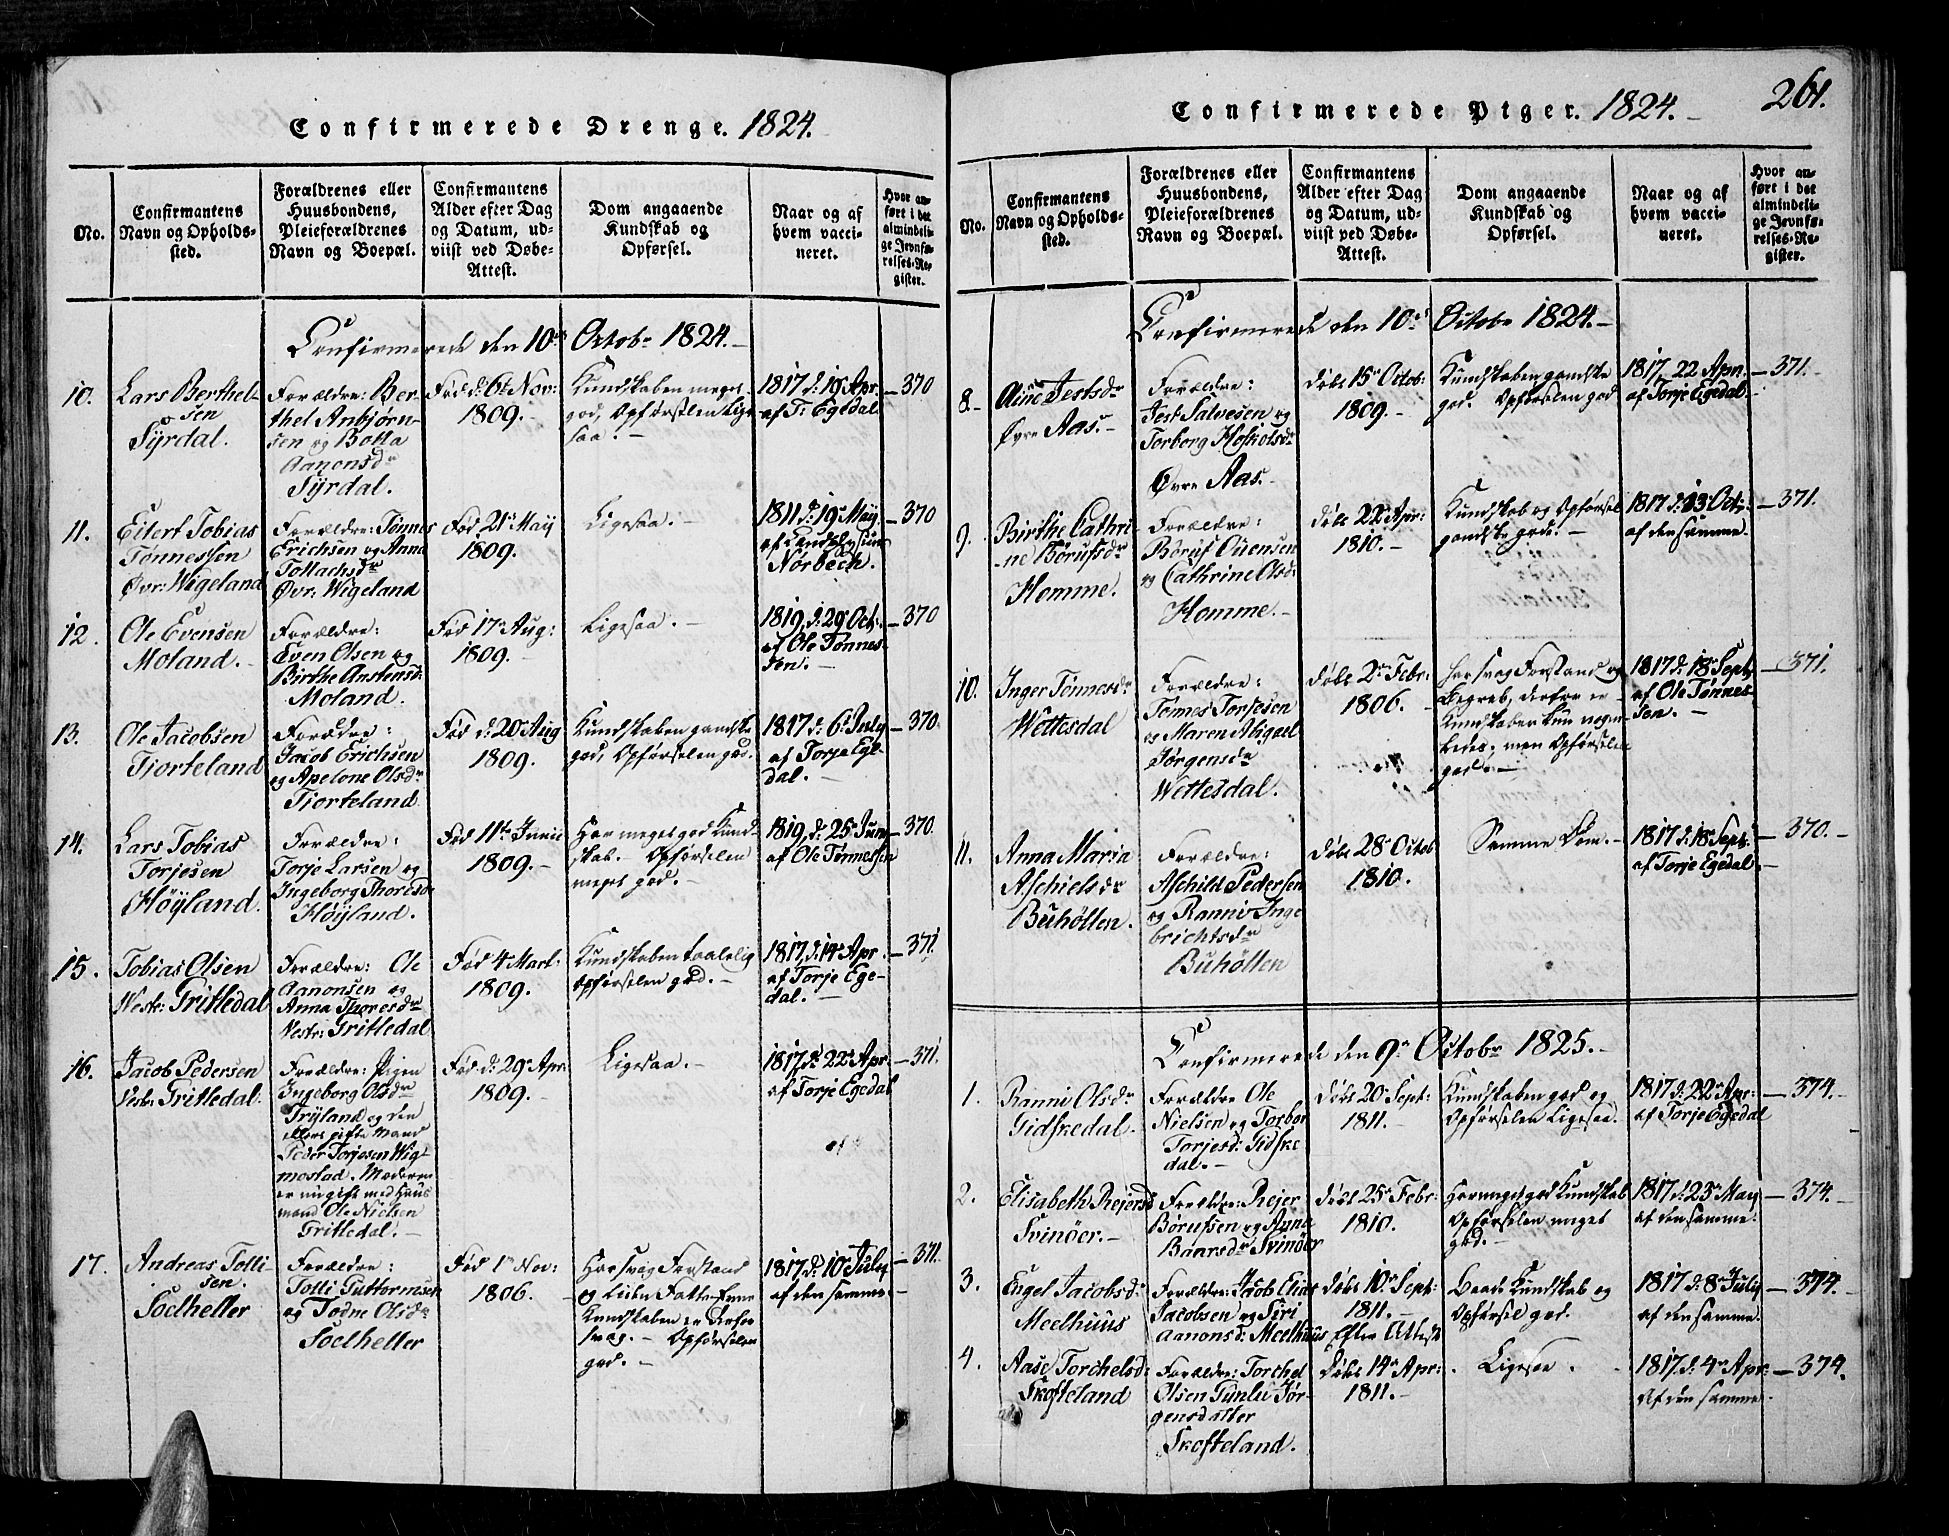 Confirmerede Drenge. 1824.
No.
Confirmantens
Navn og Opholds-
sted.
Forældrenes eller
Huusbondens,
Pleieforældrenes
Navn og Boepæl.
Confirmantens
Alder efter Dag
og Datum, ud-
viist ved Døbe-
Attest.
Dom angaaende
Kundskab og
Opførsel.
Naar og af
hvem vacci-
neret.
Hvor an-
ført i det
almindeli-
ge Jevnfø-
relses-Re-
gister.
Confirmerede den 10de Octobr 1824.
10.
Lars Berthel-
sen
Syrdal.
Forældre: Ber-
thel Anbjørn-
sen og Botta
Aanonsdr
Syrdal.
Fød d: 6t Nov:
1809.
Kundskaben meget
god, Opførselen lige
saa.
1817 d: 19 Apr.
af T. Egedal
370
11.
Eilert Tobias
Tønnessen
Øvr: Wigeland
Forældre: Tønnes
Erichsen og Anna
Tollachsdr
Øvr: Wigeland
Fød 21r Maÿ
1809.
Ligesaa.
1811 d: 19r Maÿ
af
Norbech.
370
12.
Ole Evensen
Moland.
Forældre:
Even Olsen og
Birthe Anstensd:
Moland.
Fød 17r Aug:
1809.
Ligesaa.
1819, d: 29r Oct:
af Ole Tønnes-
sen.
370
13.
Ole Jacobsen
Fjorteland
Forældre:
Jacob Erichsen
og Apelone Olsdr
Fjorteland
Fød d: 20r Aug
1809.
Kundskaben gandske
god, Opførselen god.
1817 d: 6t July
af Torje Ege-
dal.
370.
14.
Lars Tobias
Torjesen
Høyland.
Forældre:
Torje Larsen og
Ingeborg Thoresdr
Høyland.
Fød 11te Junii
1809.
Har meget god Kund-
skab. Opførselen
meget god.
1819, d: 25r Jun
af Ole Tønnessen
370.
15.
Tobias Olsen
Westr: Fritledal
Forældre: Ole
Aanonsen og
Anna Thoresdr
Vestr: Fritledal
Fød 4 Mart:
1809.
Kundskaben taalelig
Opførselen god.
1817, d: 14r Apr.
af Torje Ege-
dal.
371
16.
Jacob Pedersen
Vestr: Fritledal.
Forældre: Pigen
Ingeborg Olsdr
Frÿland og den
ellers gifte Mand
Peder Torjesen Wig-
mostad. Moderen
er nu gift med Huus
mand Ole Nielsen
Fritledal.
Fød d: 29r Apr
1809.
Ligesaa.
1817, d: 22r Apr.
af Torje Egedal
371.
17.
Andreas Tolli-
sen.
Soelheller
Forældre:
Tolli Guttormsen
og Todne Olsdr
Soelheller
Fød 1r Nov:
1806.
Har svag Forstand
og Liden Fatte-Evne
Kundskaben er derfor
svag. Opførselen
god.
1817 d: 10r July
af den samme.
371.
261.
Confirmerede Piger. 1824.
No.
Confirmantens
Navn og Opholds-
sted.
Forældrenes eller
Huusbondens,
Pleieforældrenes
Navn og Boepæl.
Confirmantens
Alder efter Dag
og Datum, ud-
viist ved Døbe-
Attest.
Dom angaaende
Kundskab og
Opførsel.
Naar og af
hvem vacci-
neret.
Hvor an-
ført i det
almindeli-
ge Jevnfø-
relses-Re-
gister.
Confirmerede den 10de Octobr 1824.
8.
Jestsdr
Øvre Aas.
Forældre:
Jest Salvesen og
Torborg Hoskolsdr
Øvre Aas.
Døbt 15r Octob:
1809.
Kundskaben gandske
god. Opførselen god
1817, 22 Apr.
af Torje Egedal
371.
9.
Birthe Cathri-
ne Børufsdr
Homme.
Forældre:
Børuf Ouensen
og Cathrine Olsd:
Homme.
Døbt 22r Apr:
1810.
Kundskab og Opførsel
gandske gode.
1817 d: 13 Oct:
af den samme.
371.
10.
Inger Tønnesdr
Wettesdal
Forældre:
Tønnes Torjesen
og Maren Abigael
Jørgensdr
Wettesdal.
Døbt 2r Febr:
1806.
Har svag Forstand og
Begreb, derfor er
Kundskaben kun nogen-
ledes; men Opførselen
god.
1817 d: 18r Sept.
af Ole Tønnes-
sen.
371.
11.
Anna Maria
Aschielsdr
Buhölten.
Forældre:
Aschild Pedersen
og Ranni Inge
brichtsdr
Buhölten
Døbt 28r Octob
1810.
Samme Dom.
1817 d: 18r Sept.
af Torje Egedal
370.
Confirmerede den 9r Octobr 1825.
1.
Ranni Olsdr
Gidskedal.
Forældre Ole
Nielsen og Torbor
Torjesd: Gidske
dal.
Døbt 20r Sept:
1811.
Kundskaben god og
Opførselen Ligesaa.
1817 d: 22r Apr:
af Torje Egedal
374.
2.
Elisabeth Rejersd
Svinöer.
Forældre: Rejer
Børufsen og Anna
Baarsdr Svinöer
Døbt 25r Febr:
1810.
Har meget god Kundskab
Opførselen meget
god.
1817 d: 23r May
af den samme.
374.
3.
Engel Jacobsdr
Meelhuus
Forældre: Jacob Elias
Jacobsen og Siri
Aanonsd: Meelhuus
Døbt 10r Sept:
1811.
Efter Attest
Baade Kundskab og
Opførsel god.
1817 d: 8r July
af den samme.
374.
4.
Aase Torchelsd:
Skofteland
Forældre: Torchel
Olsen Gunlu Jør-
gensdatter
Skofteland.
Døbt 14r Apr:
1811.
Ligesaa.
1817. d: 4r Apr:
af den samme.
374.